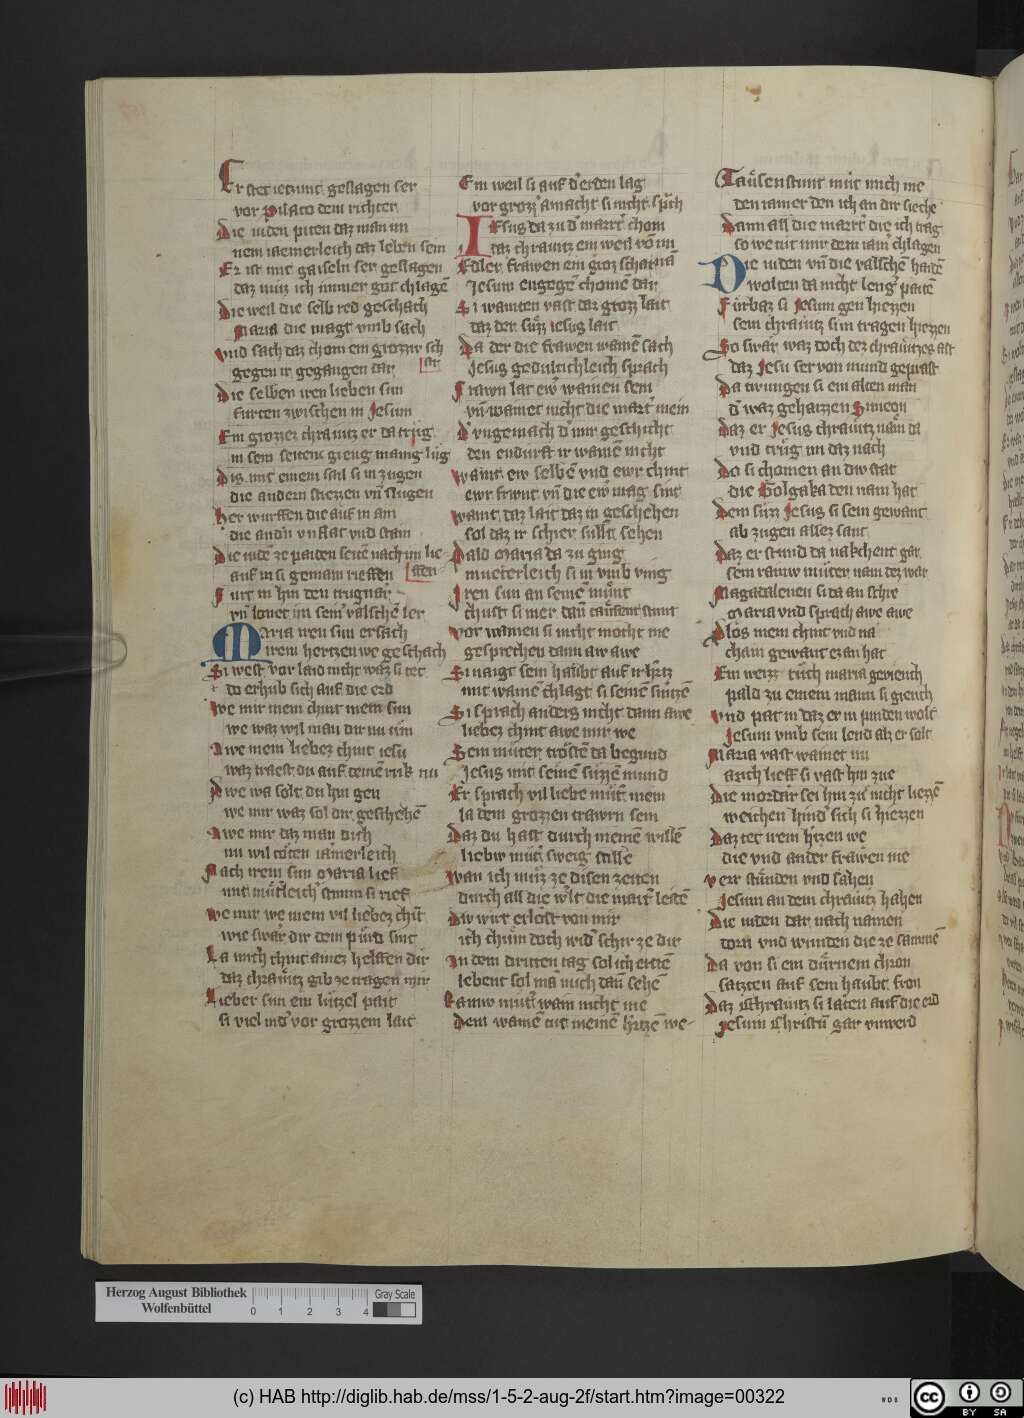 Er stet ietzunt geslagen ser
vor pilato dem richter
Die iuden piten daz man im
nem iaemerleich daz leben sein
Er ist mit gaiseln ser geslagen
daz muz ich immer got chlagē
Die weil die selb red geschach
Maria die magt vmb sach
vnd sach daz chom ein grozziv sch
gegen ir gegangen dar ar
Die selben iren lieben sun
furten zwischen in Jesum
Ein grozzez chräutz er da trug
in sein seiten gieng manig
mit einem sail si in zugen
die andern stiezzen vn̄ slugen
her wurffen die auf in am
die andn̄ vnflat vnd stain
Die iudē ze paiden seitē nach im lie
auf in si gemain rieffen ffen
Furt in hin den trugnar
vn̄ lonet im seiner valschē ler
Maria iren sun ersach
irem hertzen we geschach
Si west vor laid nicht waz si tet
do erhub sich auf die erd
We mir mein chint mein sun
we waz wil man dir nu tun
Awe mein liebez chint iesu
waz traest du auf deinē ruk nu
Awe wa solt du hin gen
we mir waz sol dir geschehē
Awe mir daz man dich
nu wil töten iamerleich
Nach irem sun Maria lief
mit müterleich stimm si rief
We mir we mein vil liebez chīt
wie swar dir dein pürd sint
La mich chint ainez helffen dir
daz chräutz gib ze tragen mir
Lieber sun ein lützel pait
si viel nider vor grozzem lait
Ein weil si auf der erden lag
vor grozzer amacht si nicht sprich
Jesus da zu der marter chom
daz chräutz ein weil vō im
Edler frawen ein groz schar nā
Jesum engegē chomē dar
Si wainten vast daz groz lait
daz der süzz iesus lait
Da der die frawen wainē sach
Jesus gedulticleich sprach
Frawn lat ewer wainen sein
vn̄ wainet nicht die marter mein
Der vngemach der mir geschicht
den endurft ir wainē nicht
Waint ew selbē vnd ewr chint
ewr frivnt vn̄ die ewr mag sint
Waint daz lait daz in geschehen
sol daz ir schier sullt sehen
Pald Maria da zu ging
mueterleich si in vmb ving
Iren sun an seinē munt
chust si mer dan tausent stunt
Vor wainen si nicht mocht me
gesprechen dann aw awe
Si naigt sein haubt auf ir hertz
mit wainē chlagt si seinē smtzē
Si sprach anders nicht dann awe
liebez chint awe mir we
Sein müter trösten da begund
Jesus mit seinē suzzē mund
Er sprach vil liebe müter mein
la dein grozzen trawrn sein
Daz du hast durch meinē willē
liebiv müter sweig stille
Wan ich muz ze disen zeiten
durch all die welt die marter leidē
Div wirt erlöst von mir
ich chum doch wider schir ze dir
In dem dritten tag sol ich erstē
lebent sol mā mich dan̄ sehē
Rainiv muter wain nicht me
dein wainē tut meinē hertzē we
Tausenstunt mut mich me
den iamer den ich an dir siehe
Dann all die marter die ich trag
so we tut mir dein iamer chlagen
Die iuden vn̄ die valschē haidē
wolten da nicht lenger paitē
Fürbaz si Jesum gen hiezzen
sein chräutz si in tragen hiezzen
So swar waz doch dez chräutzes ast
daz Jesu ser von mund geprast
Da twungen si ein alten man
der waz gehaizzen Simeon
Daz er Jesus chräutz nam da
vnd trüg im daz nach
Do si chomen an div stat
die Golgaka den nam hat
Dem süzz Jesus si sein gewant
ab zugen allez sant
Daz er stund da nakchent gar
sein rainiv müter nam dez war
Magdalenen si da an schre
Maria vnd sprach awe awe
Ploz mein chint vnd na
chain gewant ez an hat
Ein weizz tuch maria gevieich
pald zu einem mann si giench
Vnd pat in daz er in pinden wolt
Jesum vmb sein lend alz er solt
Maria vast wainet nu
auch lieff si vast hin zue
Die mordar sei hin zu nicht liezzē
weichen hinder sich si hiezzen
Daz tet irem hertzen we
die vnd ander frawen me
verr stunden vnd sahen
Jesum an dem chräutz hahen
Die iuden dar nach namen
dorn vnd wunden die ze samnē
Da von si ein dürnein chron
satzten auf sein haubt fron
Daz Chräutz si laiten auf die erd
Jesum Christū gar vnwerd
Herzog August Bibliothek
Wolfenbüttel
0 1 2 3 4
Gray Scale
(c) HAB http://diglib.hab.de/mss/1-5-2-aug-2f/start.htm?image=00322
WD6
cc BY SA